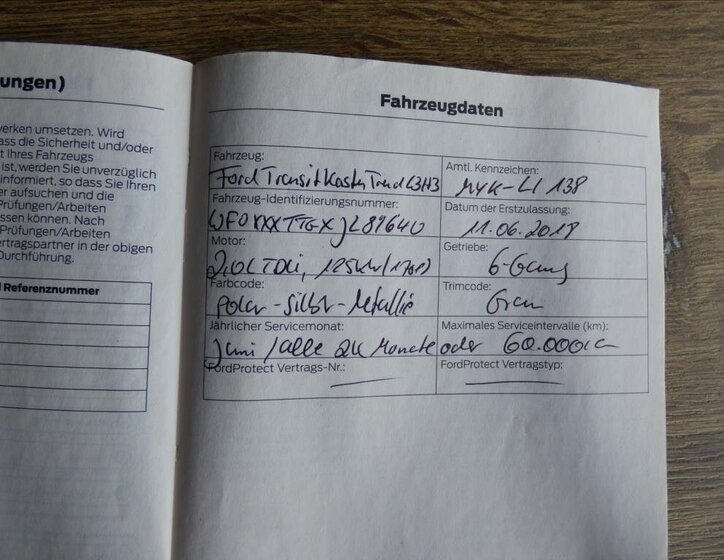 ungen)
erken umsetzen. Wird
ass die Sicherheit und/oder
t Ihres Fahrzeugs
ist, werden Sie unverzüglich
nformiert, so dass Sie Ihren
er aufsuchen und die
Prüfungen/Arbeiten
ssen können. Nach
Prüfungen/Arbeiten
ertragspartner in der obigen
Durchführung.
Referenznummer
Fahrzeugdaten
Fahrzeug:
Ford Transit Kasten Trend L3H3
Amtl. Kennzeichen:
MYK-LI 138
Fahrzeug-Identifizierungsnummer:
WF0XXXTTGXJL89640
Datum der Erstzulassung:
11.06.2018
Motor:
2,0L TDCi, 125kW/(170PS)
Getriebe:
6-Gang
Farbcode:
polar-silber-Metallic
Trimcode:
Jährlicher Servicemonat:
Juni/alle 24 Monate oder
Maximales Serviceintervalle (km):
60.000km
FordProtect Vertrags-Nr.:
FordProtect Vertragstyp: